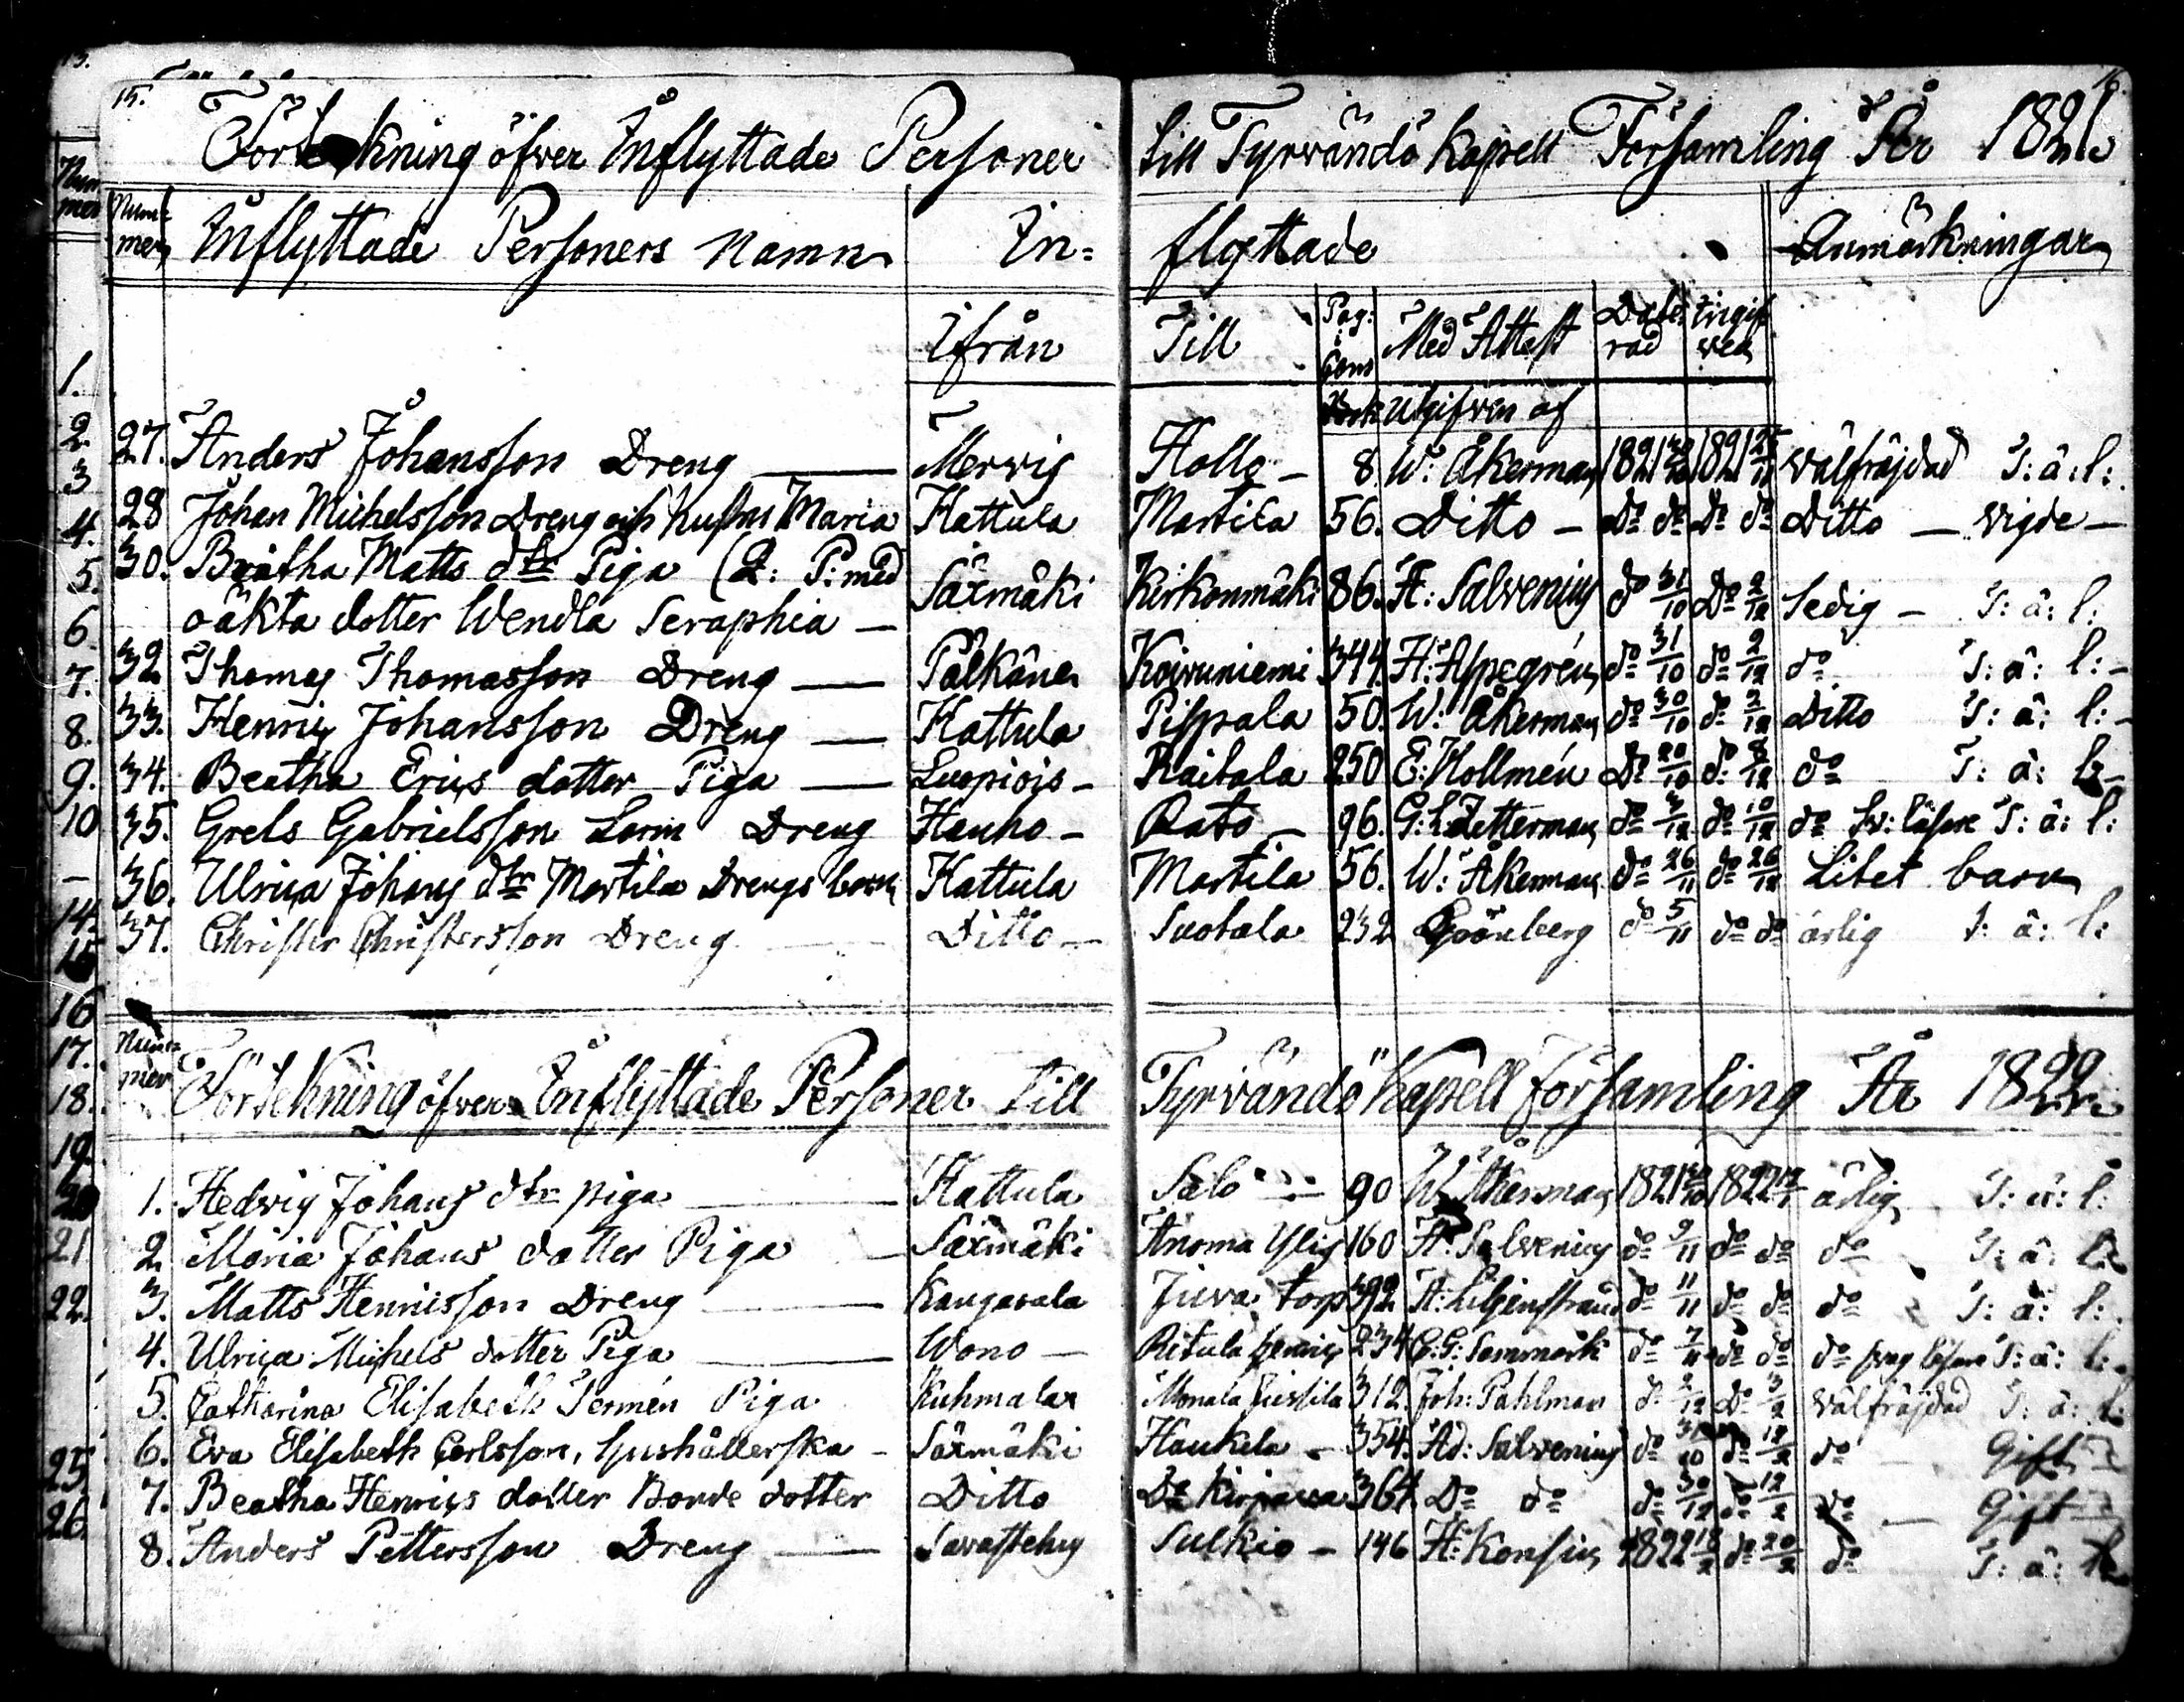 15. 16.
Förtekning öfver Inflyttade Personer till Tyrvändö Kapell Församling År 1821.
Num= mer Inflyttade Personers Namn In= flyttade Anmärkningar
Ifrån Till Pag: i Com Bok Med Attest Utgifven af Date= rad Ingif ven
27. Anders Johansson Dreng — Mervig Hollo — 8. W: Åkerman 1821 1821 välfräjdad T: ä: l:
28 Johan Michelsson Dreng och hustru Maria Hattula Martila 56. Ditto — Do do Do do Ditto — vigde —
30. Beatha Matts dtr Piga (Q: P: med
oäkta dotter Wendla Seraphia — Säxmäki Kirkonmäki 86. A: Salvenius do 31/10 Do 2/12 Ledig — T: ä: l:
32 Thomas Thomasson Dreng — Pälkäne Koivuniemi 344. H: Alpegrén do 31/10 do 2/12 do T: ä: l: —
33. Henric Johansson Dreng — Hattula Pispala 50. W: Åkerman do 30/10 do 2/12 Ditto T: ä: l: —
34. Beatha Erics dotter Piga — Luopiois — Raitala 250 E: Hollmén Do 20/10 do 8/12 do T: ä: l: —
35. Grels Gabrielsson Lorin Dreng Hauho — Rato — 96. G: L: Zetterman do 3/12 do 10/12 do sv: läsare T: ä: l:
36. Ulrica Johans dtr Martila Drengs barn Hattula Martila 56. W: Åkerman do 26/11 do 26/12 Litet barn
37. Christer Christersson Dreng — Ditto — Suotala 232 Grönberg do 5/11 do do ärlig T: ä: l:
Num= mer Förtekning öfver Inflyttade Personer till Tyrvändö Kapell församling År 1822.
1. Hedvig Johans dtr piga — Hattula Salo — 90 W: Åkerman 1821 1822 ärlig T: ä: l:
2. Maria Johans dotter Piga — Säxmäki Anoma Ylis 160 A: Salvenius do 9/11 do do do T: ä: l:
3. Matts Henricsson Dreng — Kangasala Juva torp 392. A: Liljenstrand do 11/11 do do do T: ä: l:
4. Ulrica Michels dotter Piga — Wono — Ritula Henric 234 C: G: Sammark do 7/11 do do do svag läsare T: ä: l:
5. Catharina Elisabeth Jernén Piga Kuhmalax Monala Jussila 312. Joh: Pahlman do 2/12 Do 3/2 välfräjdad T: ä: l:
6. Eva Elisabeth Carlsson, hushållerska — Säxmäki Haukila — 354. Ad: Salvenius do 31/10 do 12/2 do — Gift —
7. Beatha Henrics dotter Bonde dotter Ditto Do Kirjava 364 Do do do 30/12 do 12/2 do — Gift —
8. Anders Pettersson Dreng — Tavastehus Sulkio — 146 H: Konsin 1822 18/2 do 20/2 do T: ä: l:
Num mer
1.
2.
3
4.
5.
6
7.
8.
9.
10
14.
15
16
17.
18.
19.
20
21
22.
25.
26.